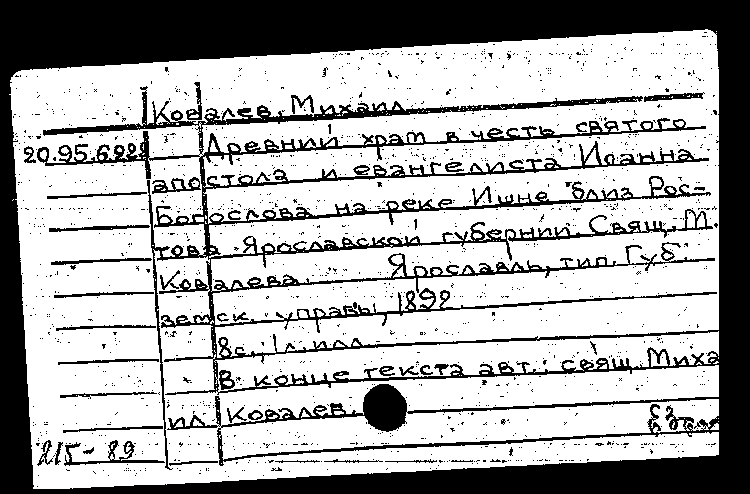 Ковалев, Михаил
20.95.6222 Древний храм в честь святого
апостола и евангелиста Иоанна
Богослова на реке Ишне близ Рос-
това Ярославской губернии. Свящ. М.
Ковалева. Ярославль, тип. Губ.
земск. управы, 1892
8с.; 1л. илл.
В конце текста авт.: свящ. Миха
ил Ковалев.
215-89